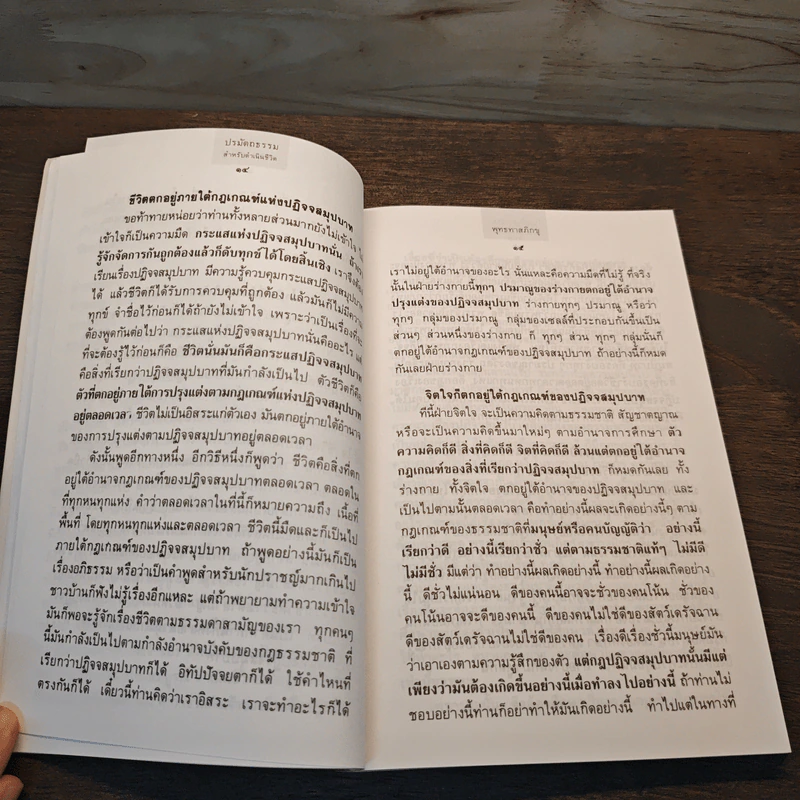 ปรมัตถธรรม
สำหรับดำเนินชีวิต
๑๔
ชีวิตตกอยู่ภายใต้กฎเกณฑ์แห่งปฏิจจสมุปบาท
ขอท้าทายหน่อยว่าท่านทั้งหลายส่วนมากยังไม่เข้าใจ
เข้าใจก็เป็นความมืด กระแสแห่งปฏิจจสมุปบาทนั้น
รู้จักจัดการกันถูกต้องแล้วก็ดับทุกข์ได้โดยสิ้นเชิง เราจึงต้อง
เรียนเรื่องปฏิจจสมุปบาท มีความรู้ควบคุมกระแสปฏิจจสมุปบาท
ได้ แล้วชีวิตก็ได้รับการควบคุมที่ถูกต้อง แล้วมันก็ไม่มีความ
ทุกข์ จำชื่อไว้ก่อนก็ได้ถ้ายังไม่เข้าใจ เพราะว่าเป็นเรื่องที่จะ
ต้องพูดกันต่อไปว่า กระแสแห่งปฏิจจสมุปบาทนั้นคืออะไร แต่
ที่จะต้องรู้ไว้ก่อนก็คือ ชีวิตนั่นมันก็คือกระแสปฏิจจสมุปบาท
คือสิ่งที่เรียกว่าปฏิจจสมุปบาทที่มันกำลังเป็นไป ตัวชีวิตก็คือ
ตัวที่ตกอยู่ภายใต้การปรุงแต่งตามกฎเกณฑ์แห่งปฏิจจสมุปบาท
อยู่ตลอดเวลา ชีวิตไม่เป็นอิสระแก่ตัวเอง มันตกอยู่ภายใต้อำนาจ
ของการปรุงแต่งตามปฏิจจสมุปบาทอยู่ตลอดเวลา
ดังนั้นพูดอีกทางหนึ่ง อีกวิธีหนึ่งก็พูดว่า ชีวิตคือสิ่งที่ตก
อยู่ใต้อำนาจกฎเกณฑ์ของปฏิจจสมุปบาทตลอดเวลา ตลอดใน
ที่ทุกหนทุกแห่ง คำว่าตลอดเวลาในที่นี้ก็หมายความถึง เนื้อที่
พื้นที่ โดยทุกหนทุกแห่งและตลอดเวลา ชีวิตนี้มืดและก็เป็นไป
ภายใต้กฎเกณฑ์ของปฏิจจสมุปบาท ถ้าพูดอย่างนี้มันก็เป็น
เรื่องอภิธรรม หรือว่าเป็นคำพูดสำหรับนักปราชญ์มากเกินไป
ชาวบ้านก็ฟังไม่รู้เรื่องอีกแหละ แต่ถ้าพยายามทำความเข้าใจ
มันก็พอจะรู้จักเรื่องชีวิตตามธรรมดาสามัญของเรา ทุกคนๆ
นี้มันกำลังเป็นไปตามกำลังอำนาจบังคับของกฎธรรมชาติ ที่
เรียกว่าปฏิจจสมุปบาทก็ได้ อิทัปปัจจยตาก็ได้ ใช้คำไหนที่
ตรงกันก็ได้ เดี๋ยวนี้ท่านคิดว่าเราอิสระ เราจะทำอะไรก็ได้
พุทธทาสภิกขุ
๑๕
เราไม่อยู่ใต้อำนาจของอะไร นั่นแหละคือความมืดที่ไม่รู้ ที่จริง
นั้นในฝ่ายร่างกายนี้ทุกๆ ปรมาณูของร่างกายตกอยู่ใต้อำนาจ
ปรุงแต่งของปฏิจจสมุปบาท ร่างกายทุกๆ ปรมาณู หรือว่า
ทุกๆ กลุ่มของปรมาณู กลุ่มของเซลล์ที่ประกอบกันขึ้นเป็น
ส่วนๆ ส่วนหนึ่งของร่างกาย ก็ ทุกๆ ส่วน ทุกๆ กลุ่มนั้นก็
ตกอยู่ใต้อำนาจกฎเกณฑ์ของปฏิจจสมุปบาท ถ้าอย่างนี้ก็หมด
กันเลยฝ่ายร่างกาย
จิตใจก็ตกอยู่ใต้กฎเกณฑ์ของปฏิจจสมุปบาท
ทีนี้ฝ่ายจิตใจ จะเป็นความคิดตามธรรมชาติ สัญชาตญาณ
หรือจะเป็นความคิดขึ้นมาใหม่ๆ ตามอำนาจการศึกษา ตัว
ความคิดก็ดี สิ่งที่คิดก็ดี จิตที่คิดก็ดี ล้วนแต่ตกอยู่ใต้อำนาจ
กฎเกณฑ์ของสิ่งที่เรียกว่าปฏิจจสมุปบาท ก็หมดกันเลย ทั้ง
ร่างกาย ทั้งจิตใจ ตกอยู่ใต้อำนาจของปฏิจจสมุปบาท และ
เป็นไปตามนั้นตลอดเวลา คือทำอย่างนี้ผลจะเกิดอย่างนี้ๆ ตาม
กฎเกณฑ์ของธรรมชาติที่มนุษย์หรือคนบัญญัติว่า อย่างนี้
เรียกว่าดี อย่างนี้เรียกว่าชั่ว แต่ตามธรรมชาติแท้ๆ ไม่มีดี
ไม่มีชั่ว มีแต่ว่า ทำอย่างนี้ผลเกิดอย่างนี้ ทำอย่างนี้ผลเกิดอย่าง
นี้ ดีชั่วไม่แน่นอน ดีของคนนี้อาจจะชั่วของคนโน้น ชั่วของ
คนโน้นอาจจะดีของคนนี้ ดีของคนไม่ใช่ดีของสัตว์เดรัจฉาน
ดีของสัตว์เดรัจฉานไม่ใช่ดีของคน เรื่องดีเรื่องชั่วนี้มนุษย์มัน
ว่าเอาเองตามความรู้สึกของตัว แต่กฎปฏิจจสมุปบาทนั้นมีแต่
เพียงว่ามันต้องเกิดขึ้นอย่างนี้เมื่อทำลงไปอย่างนี้ ถ้าท่านไม่
ชอบอย่างนี้ท่านก็อย่าทำให้มันเกิดอย่างนี้ ทำไปแต่ในทางที่